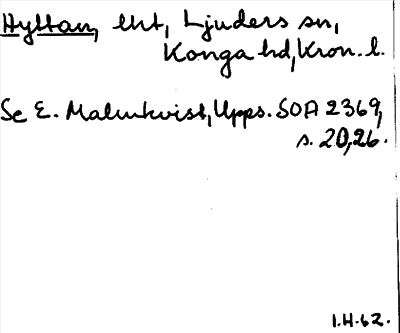 Hyltan, lht, Ljuders sn,
Konga hd, Kron. l.
Se E. Malmkvist, Upps. SOA 2369,
s. 20,26.
I.H.62.